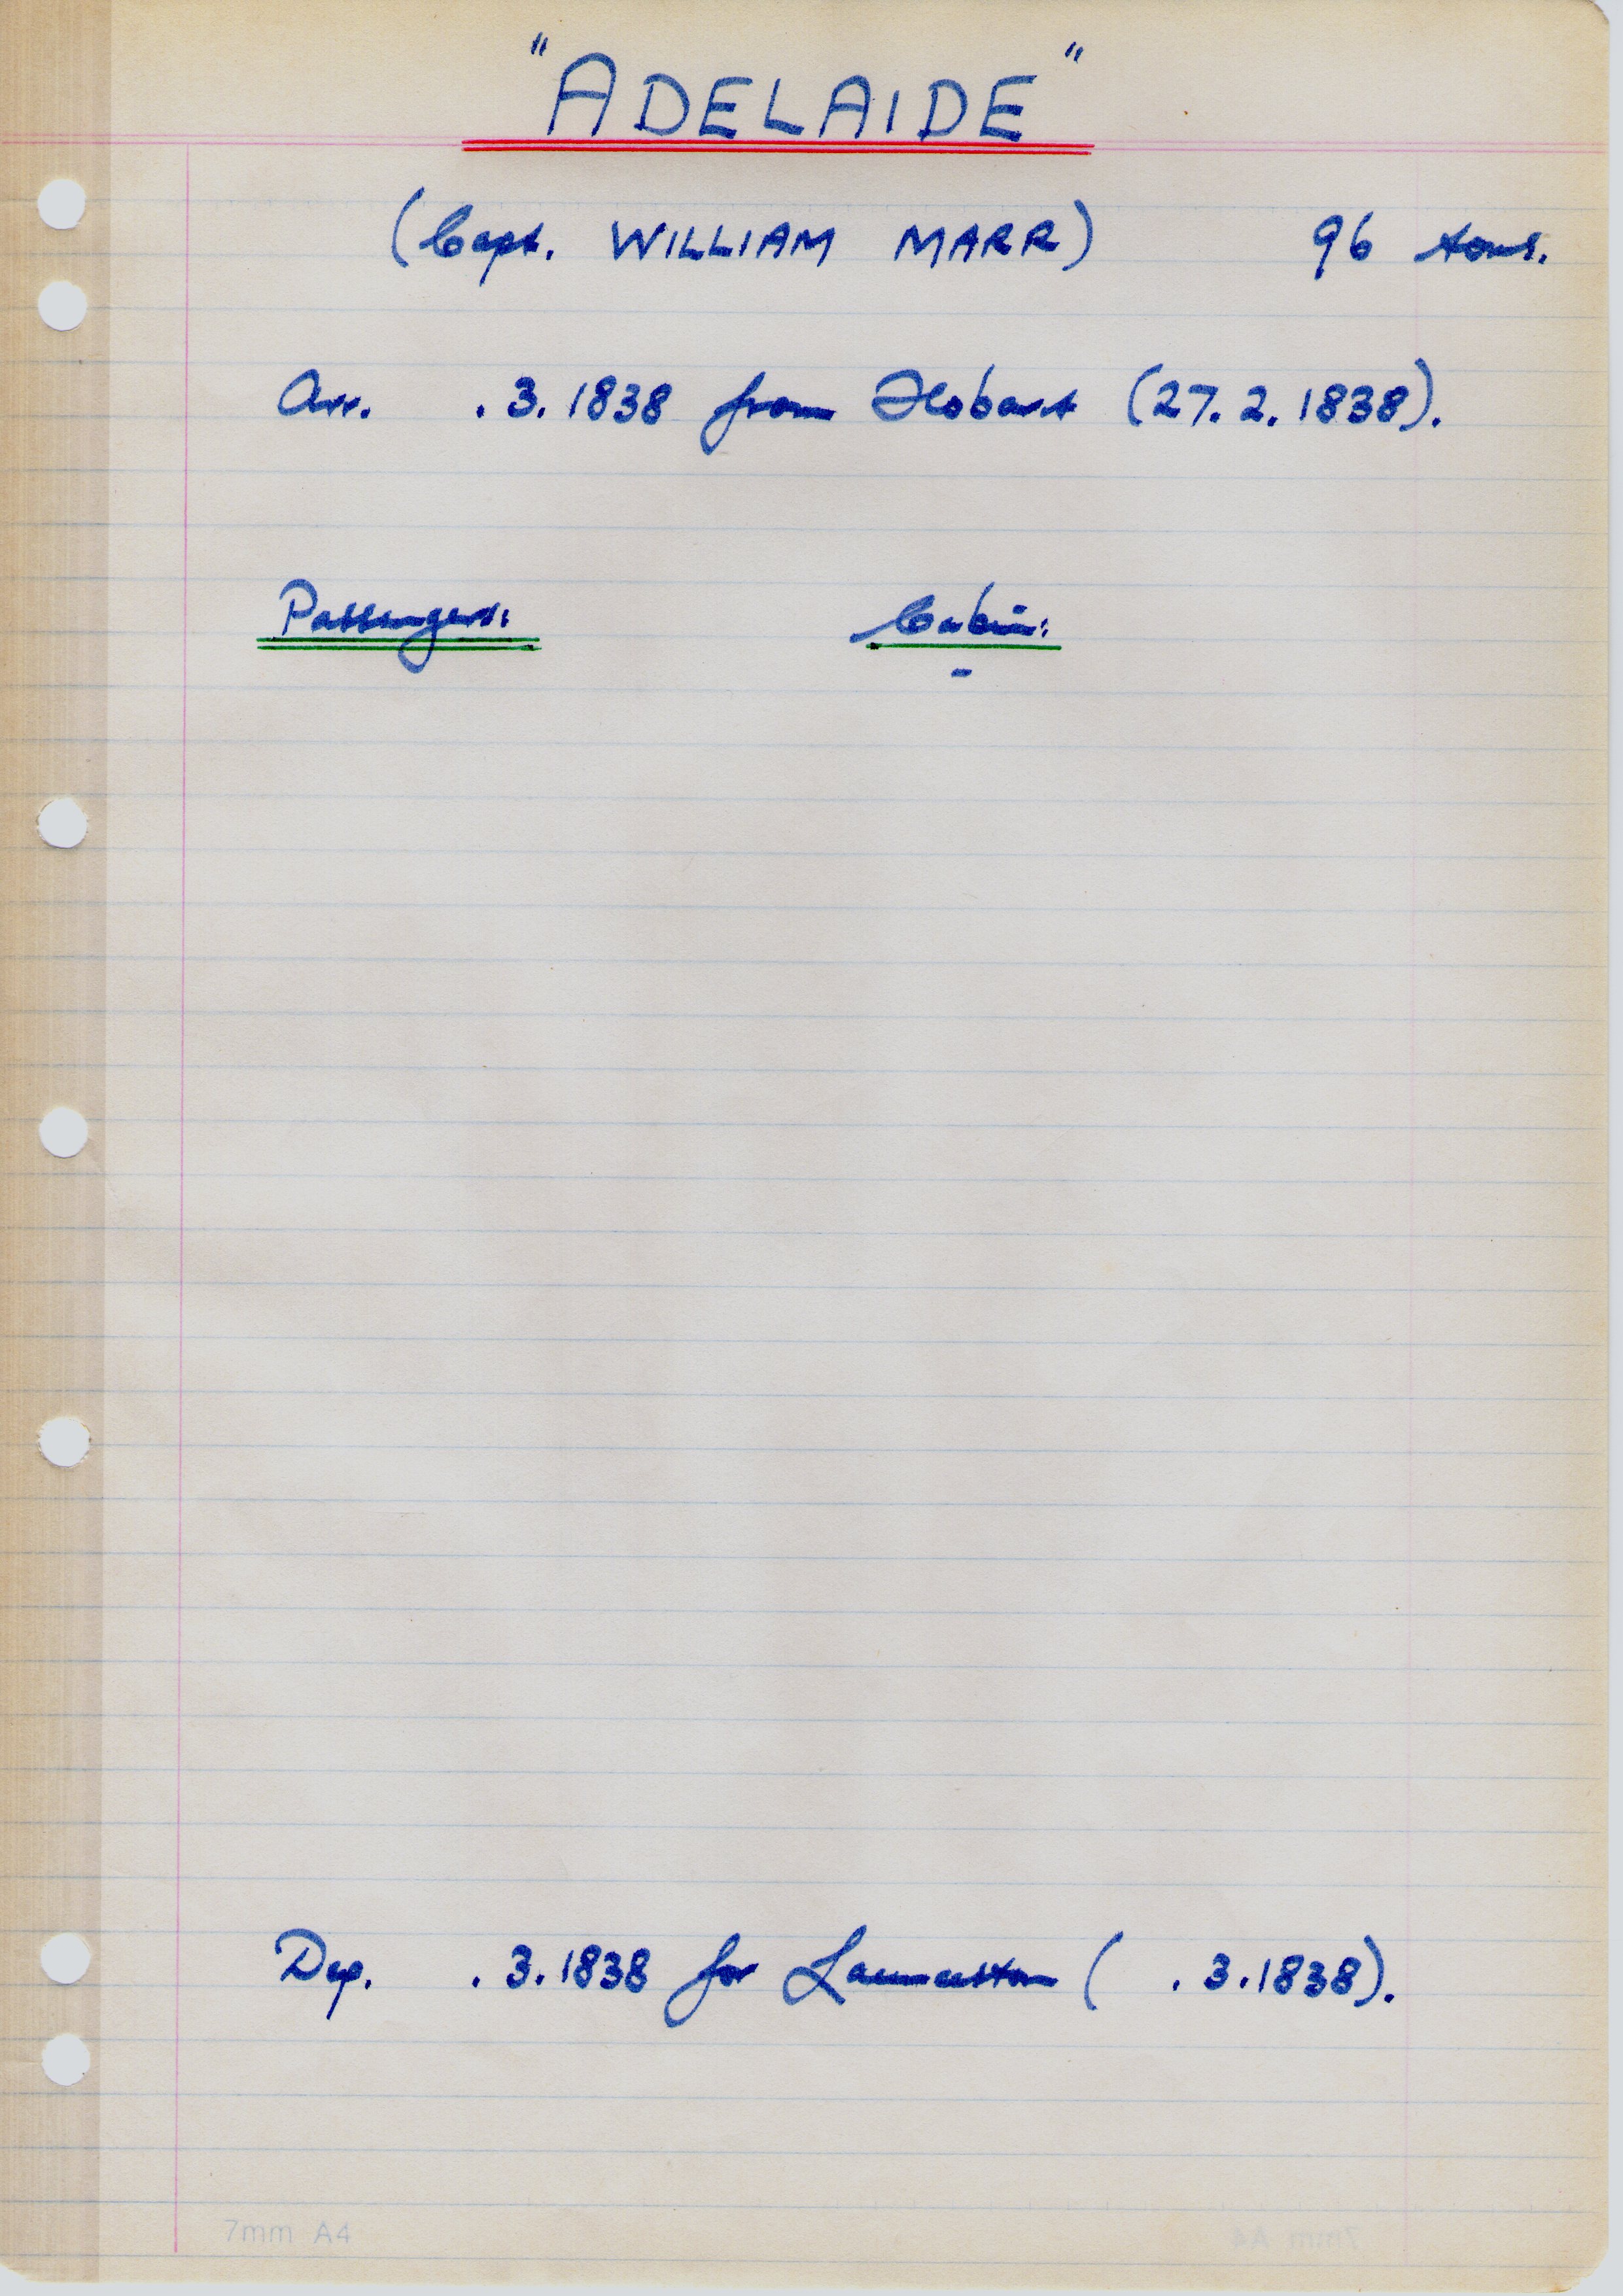 "ADELAIDE"
(Capt. WILLIAM MARR) 96 tons.
Arr. .3.1838 from Hobart (27.2.1838).
Passengers: Cabin:
-
Dep. .3.1838 for Launceston ( .3.1838).
7mm A4